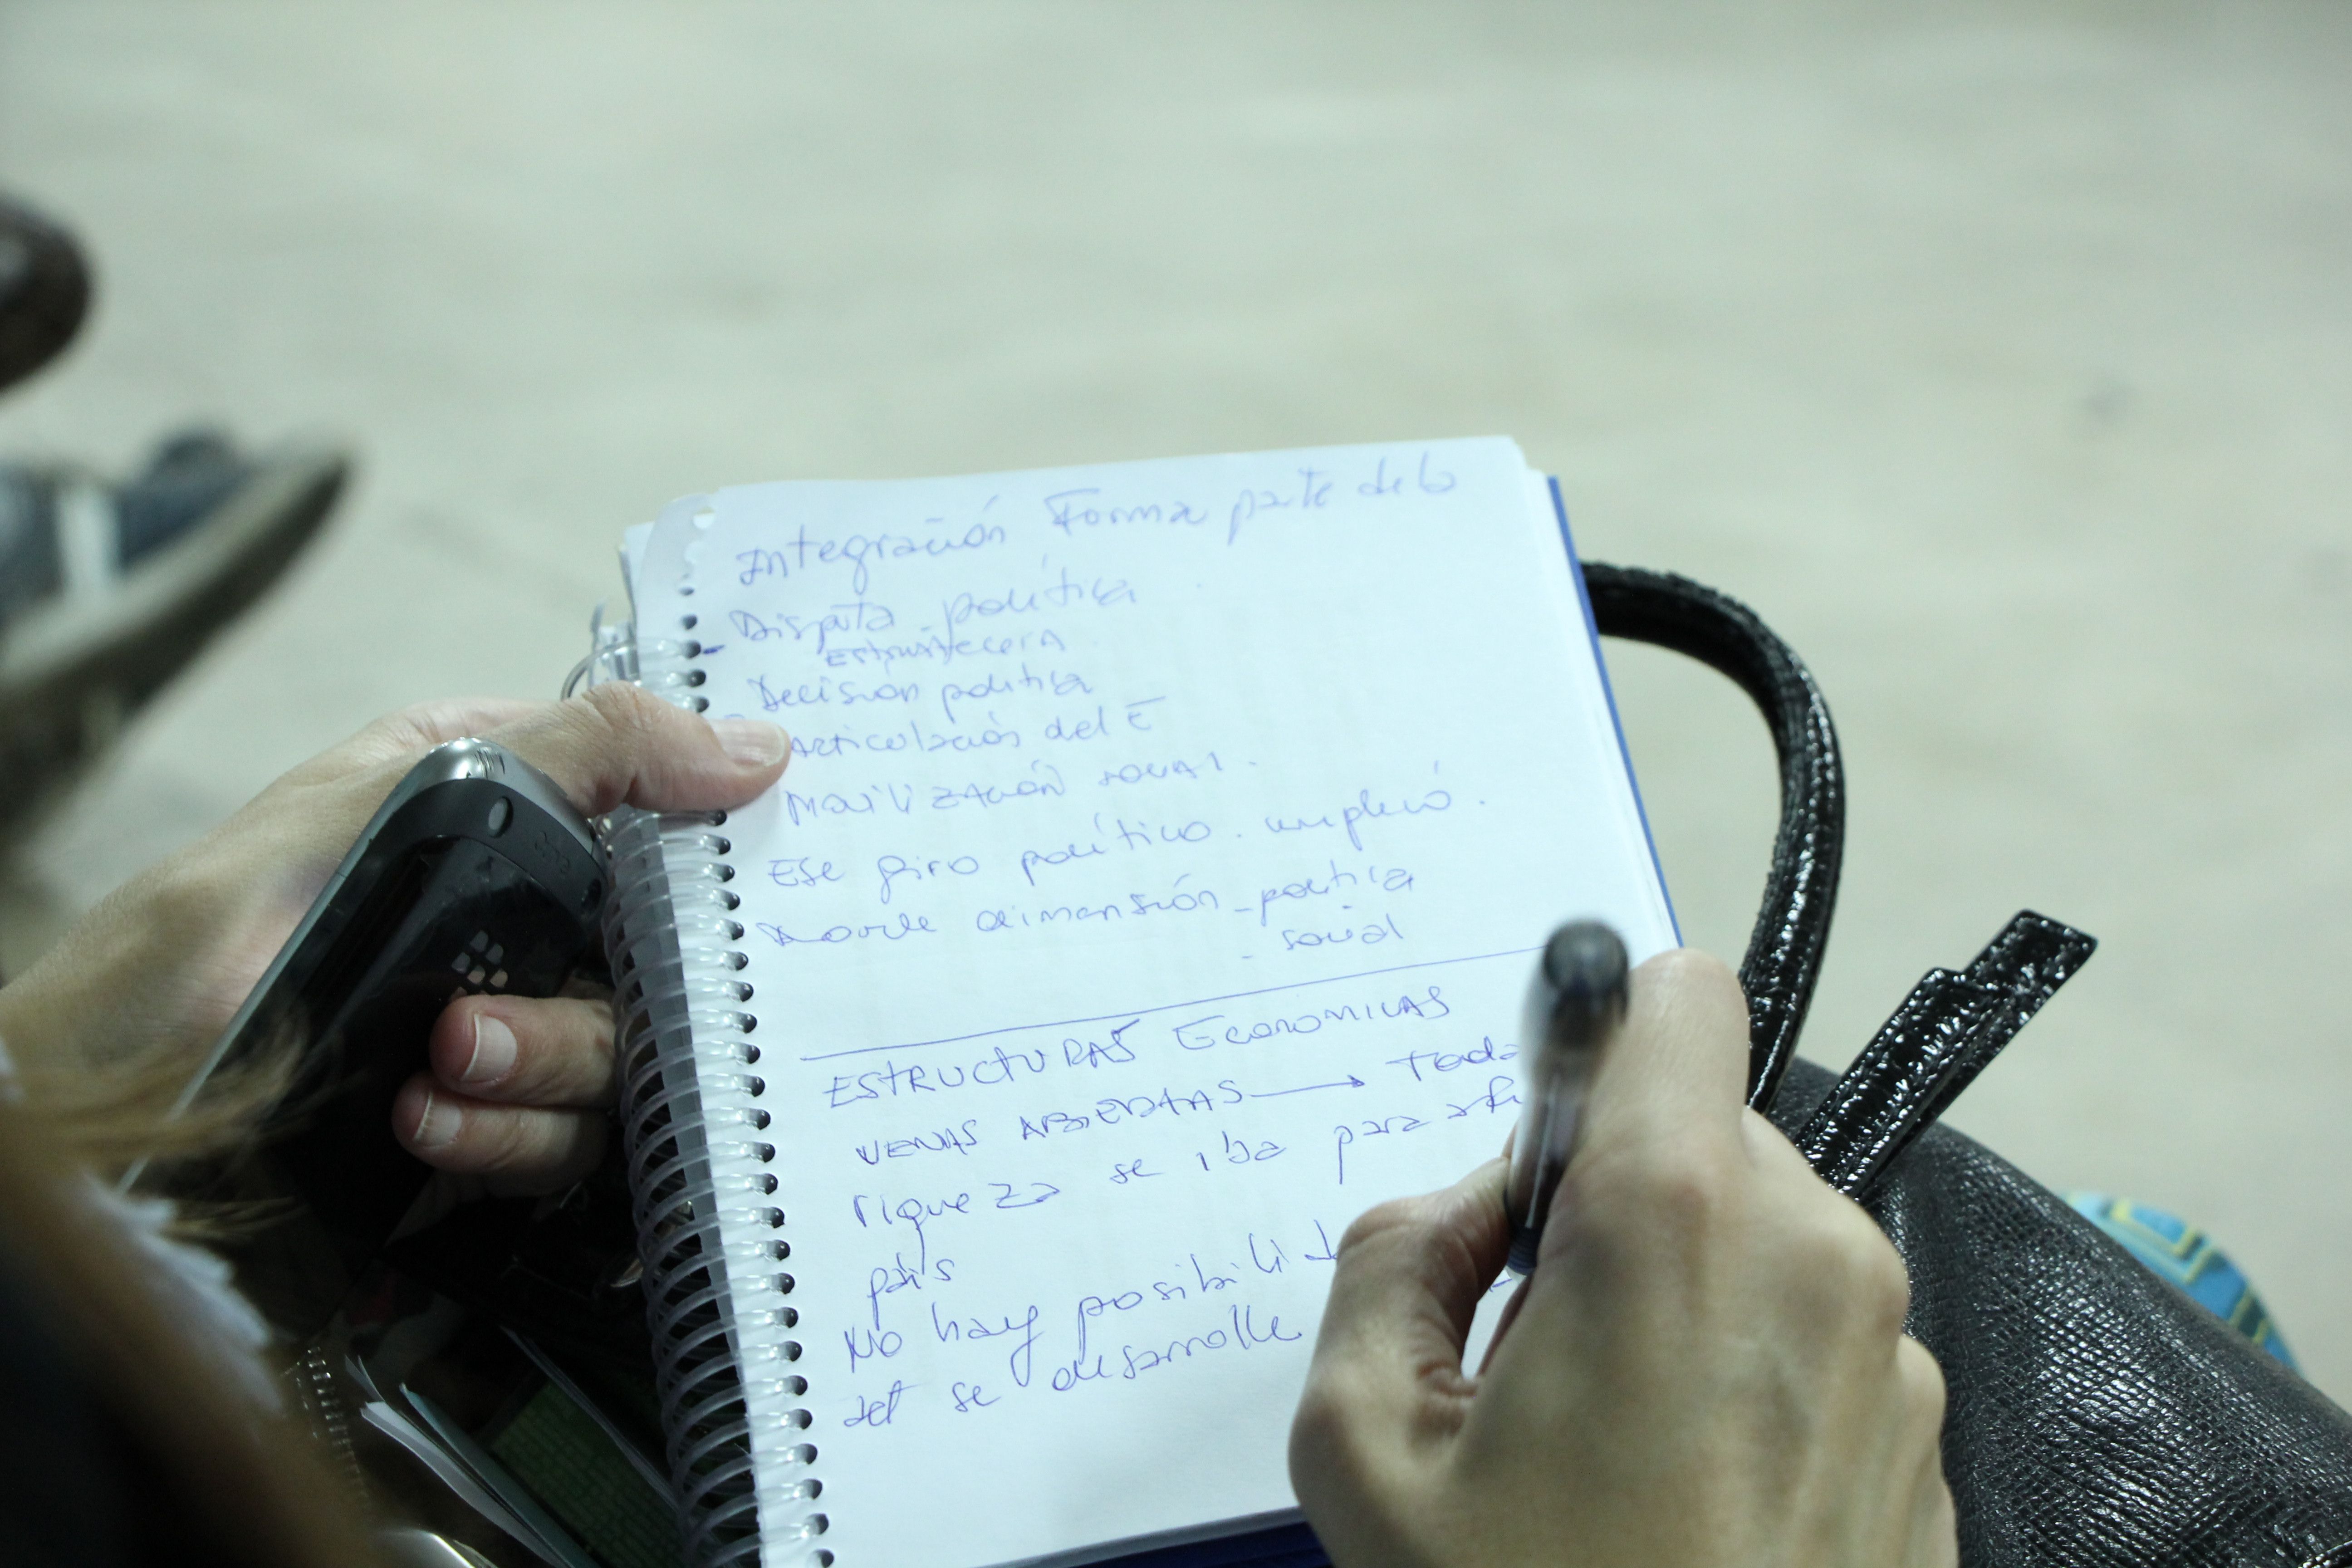 Integración Forma parte de la
- Disputa política
Decisión política
Articulación del E
Movilización social.
Ese giro político. implicó.
Doble dimensión - política
- social
ESTRUCTURAS ECONOMICAS
VENAS ABIERTAS → Toda
riqueza se iba para
país
No hay
se desarrolle